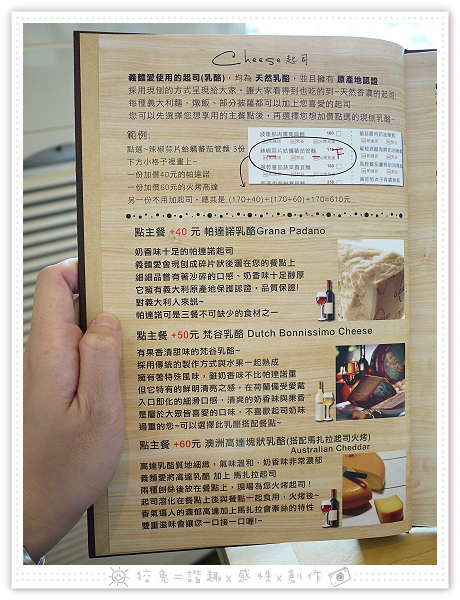 Cheese 起司
義麵愛使用的起司(乳酪)，均為 天然乳酪，並且擁有 原產地認證
採用現刨的方式呈現給大家，讓大家看得到也吃的到~天然香濃的起司!
每種義大利麵、燉飯、部分披薩都可以加上您喜愛的起司
您可以先選擇您想享用的主餐點後，再選擇您想加價點選的現刨乳酪~
範例:
點選~辣椒蒜片蛤蠣蕃茄管麵 3份
下方小格子裡畫上~
一份加價40元的帕達諾
一份加價60元的火烤高達
另一份不用加起司。感共是 (170+40)+(170+60)+170=610元
辣椒蒜片蛤蠣蕃茄管麵 170
點主餐 +40 元 帕達諾乳酪Grana Padano
奶香味十足的帕達諾起司
義麵愛會現刨成碎片狀後灑在您的餐點上
細細品嘗有著沙碎的口感、奶香味十足醇厚
它擁有義大利原產地保護認證，品質保證!
對義大利人來說~
帕達諾可是三餐不可缺少的食材之一
點主餐 +50元 梵谷乳酪 Dutch Bonnissimo Cheese
有果香清甜味的梵谷乳酪~
採用傳統的製作方式與水果一起熟成
擁有著特殊風味，雖奶香味不比帕達諾重
但它特有的鮮明清亮之感，在荷蘭備受愛戴
入口即化的細滑口感，清爽的奶香味與果香
是屬於大眾皆喜愛的口味，不喜歡起司奶味
過重的您~可以選擇此乳酪搭配餐點~
點主餐 +60元 澳洲高達塊狀乳酪(搭配馬扎拉起司火烤)
Australian Cheddar
高達乳酪質地細緻，氣味溫和，奶香味非常濃郁
義麵愛將高達乳酪 加上 馬扎拉起司
兩種刨絲後放在餐點上，現場為您火烤起司！
起司溶化在餐點上後與餐點一起食用，火烤後~
香氣逼人的濃郁高達加上馬扎拉會牽絲的特性
雙重滋味會讓您一口接一口喔!~
狡兔=諧趣x感性x創作